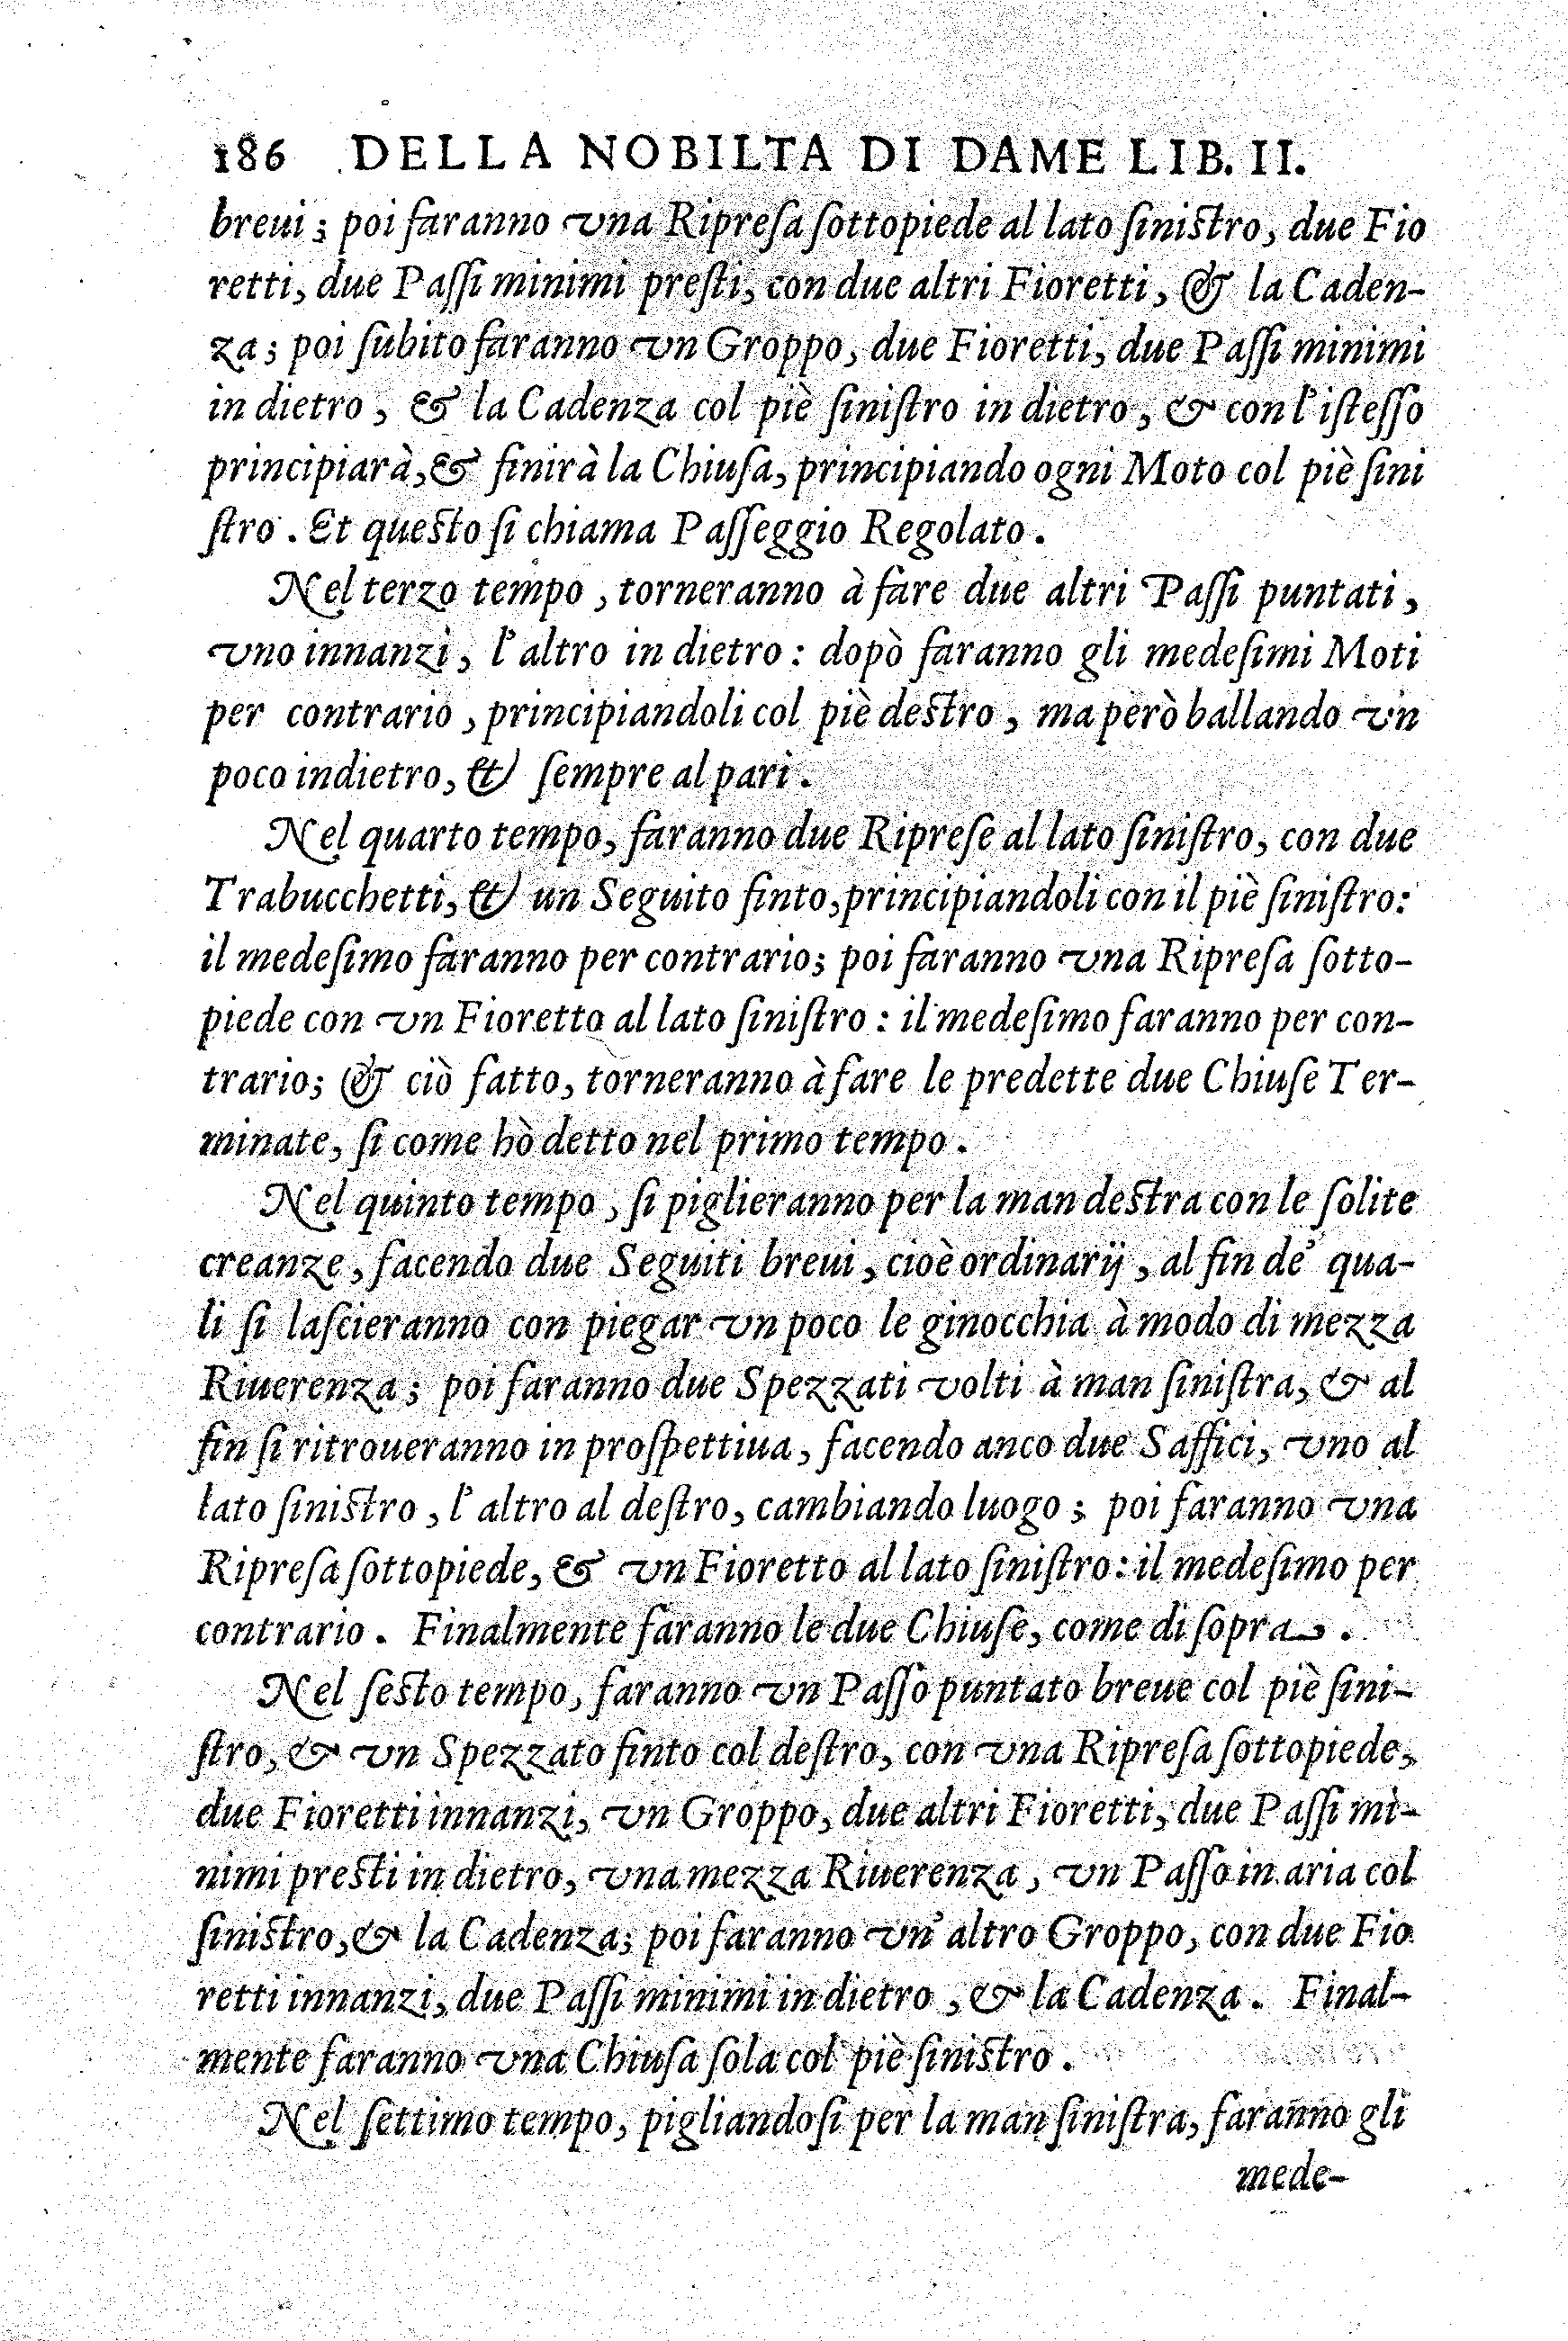 186 DELLA NOBILTA DI DAME LIB. II.
breui; poi faranno vna Ripreſa ſottopiede al lato ſiniſtro, due Fio
retti, due Paſſi minimi preſti, con due altri Fioretti, & la Caden-
za; poi ſubito faranno vn Groppo, due Fioretti, due Paſſi minimi
in dietro, & la Cadenza col piè ſiniſtro in dietro, & con l'iſteſſo
principiarà, & finirà la Chiuſa, principiando ogni Moto col piè ſini
ſtro. Et queſto ſi chiama Paſſeggio Regolato.
Nel terzo tempo, torneranno à fare due altri Paſſi puntati,
vno innanzi, l'altro in dietro: dopò faranno gli medeſimi Moti
per contrario, principiandoli col piè deſtro, ma però ballando vn
poco indietro, & ſempre al pari.
Nel quarto tempo, faranno due Ripreſe al lato ſiniſtro, con due
Trabucchetti, & un Seguito finto, principiandoli con il piè ſiniſtro:
il medeſimo faranno per contrario; poi faranno vna Ripreſa ſotto-
piede con vn Fioretto al lato ſiniſtro: il medeſimo faranno per con-
trario; & ciò fatto, torneranno à fare le predette due Chiuſe Ter-
minate, ſi come hò detto nel primo tempo.
Nel quinto tempo, ſi piglieranno per la man deſtra con le ſolite
creanze, facendo due Seguiti breui, cioè ordinarij, al fin de' qua-
li ſi laſcieranno con piegar vn poco le ginocchia à modo di mezza
Riuerenza; poi faranno due Spezzati volti à man ſiniſtra, & al
fin ſi ritroueranno in proſpettiua, facendo anco due Saffici, vno al
lato ſiniſtro, l'altro al deſtro, cambiando luogo; poi faranno vna
Ripreſa ſottopiede, & vn Fioretto al lato ſiniſtro: il medeſimo per
contrario. Finalmente faranno le due Chiuſe, come di ſopra.
Nel ſeſto tempo, faranno vn Paſſo puntato breue col piè ſini-
ſtro, & vn Spezzato finto col deſtro, con vna Ripreſa ſottopiede,
due Fioretti innanzi, vn Groppo, due altri Fioretti, due Paſſi mi-
nimi preſti in dietro, vna mezza Riuerenza, vn Paſſo in aria col
ſiniſtro, & la Cadenza; poi faranno vn' altro Groppo, con due Fio
retti innanzi, due Paſſi minimi in dietro, & la Cadenza. Final-
mente faranno vna Chiuſa ſola col piè ſiniſtro.
Nel ſettimo tempo, pigliandoſi per la man ſiniſtra, faranno gli
mede-